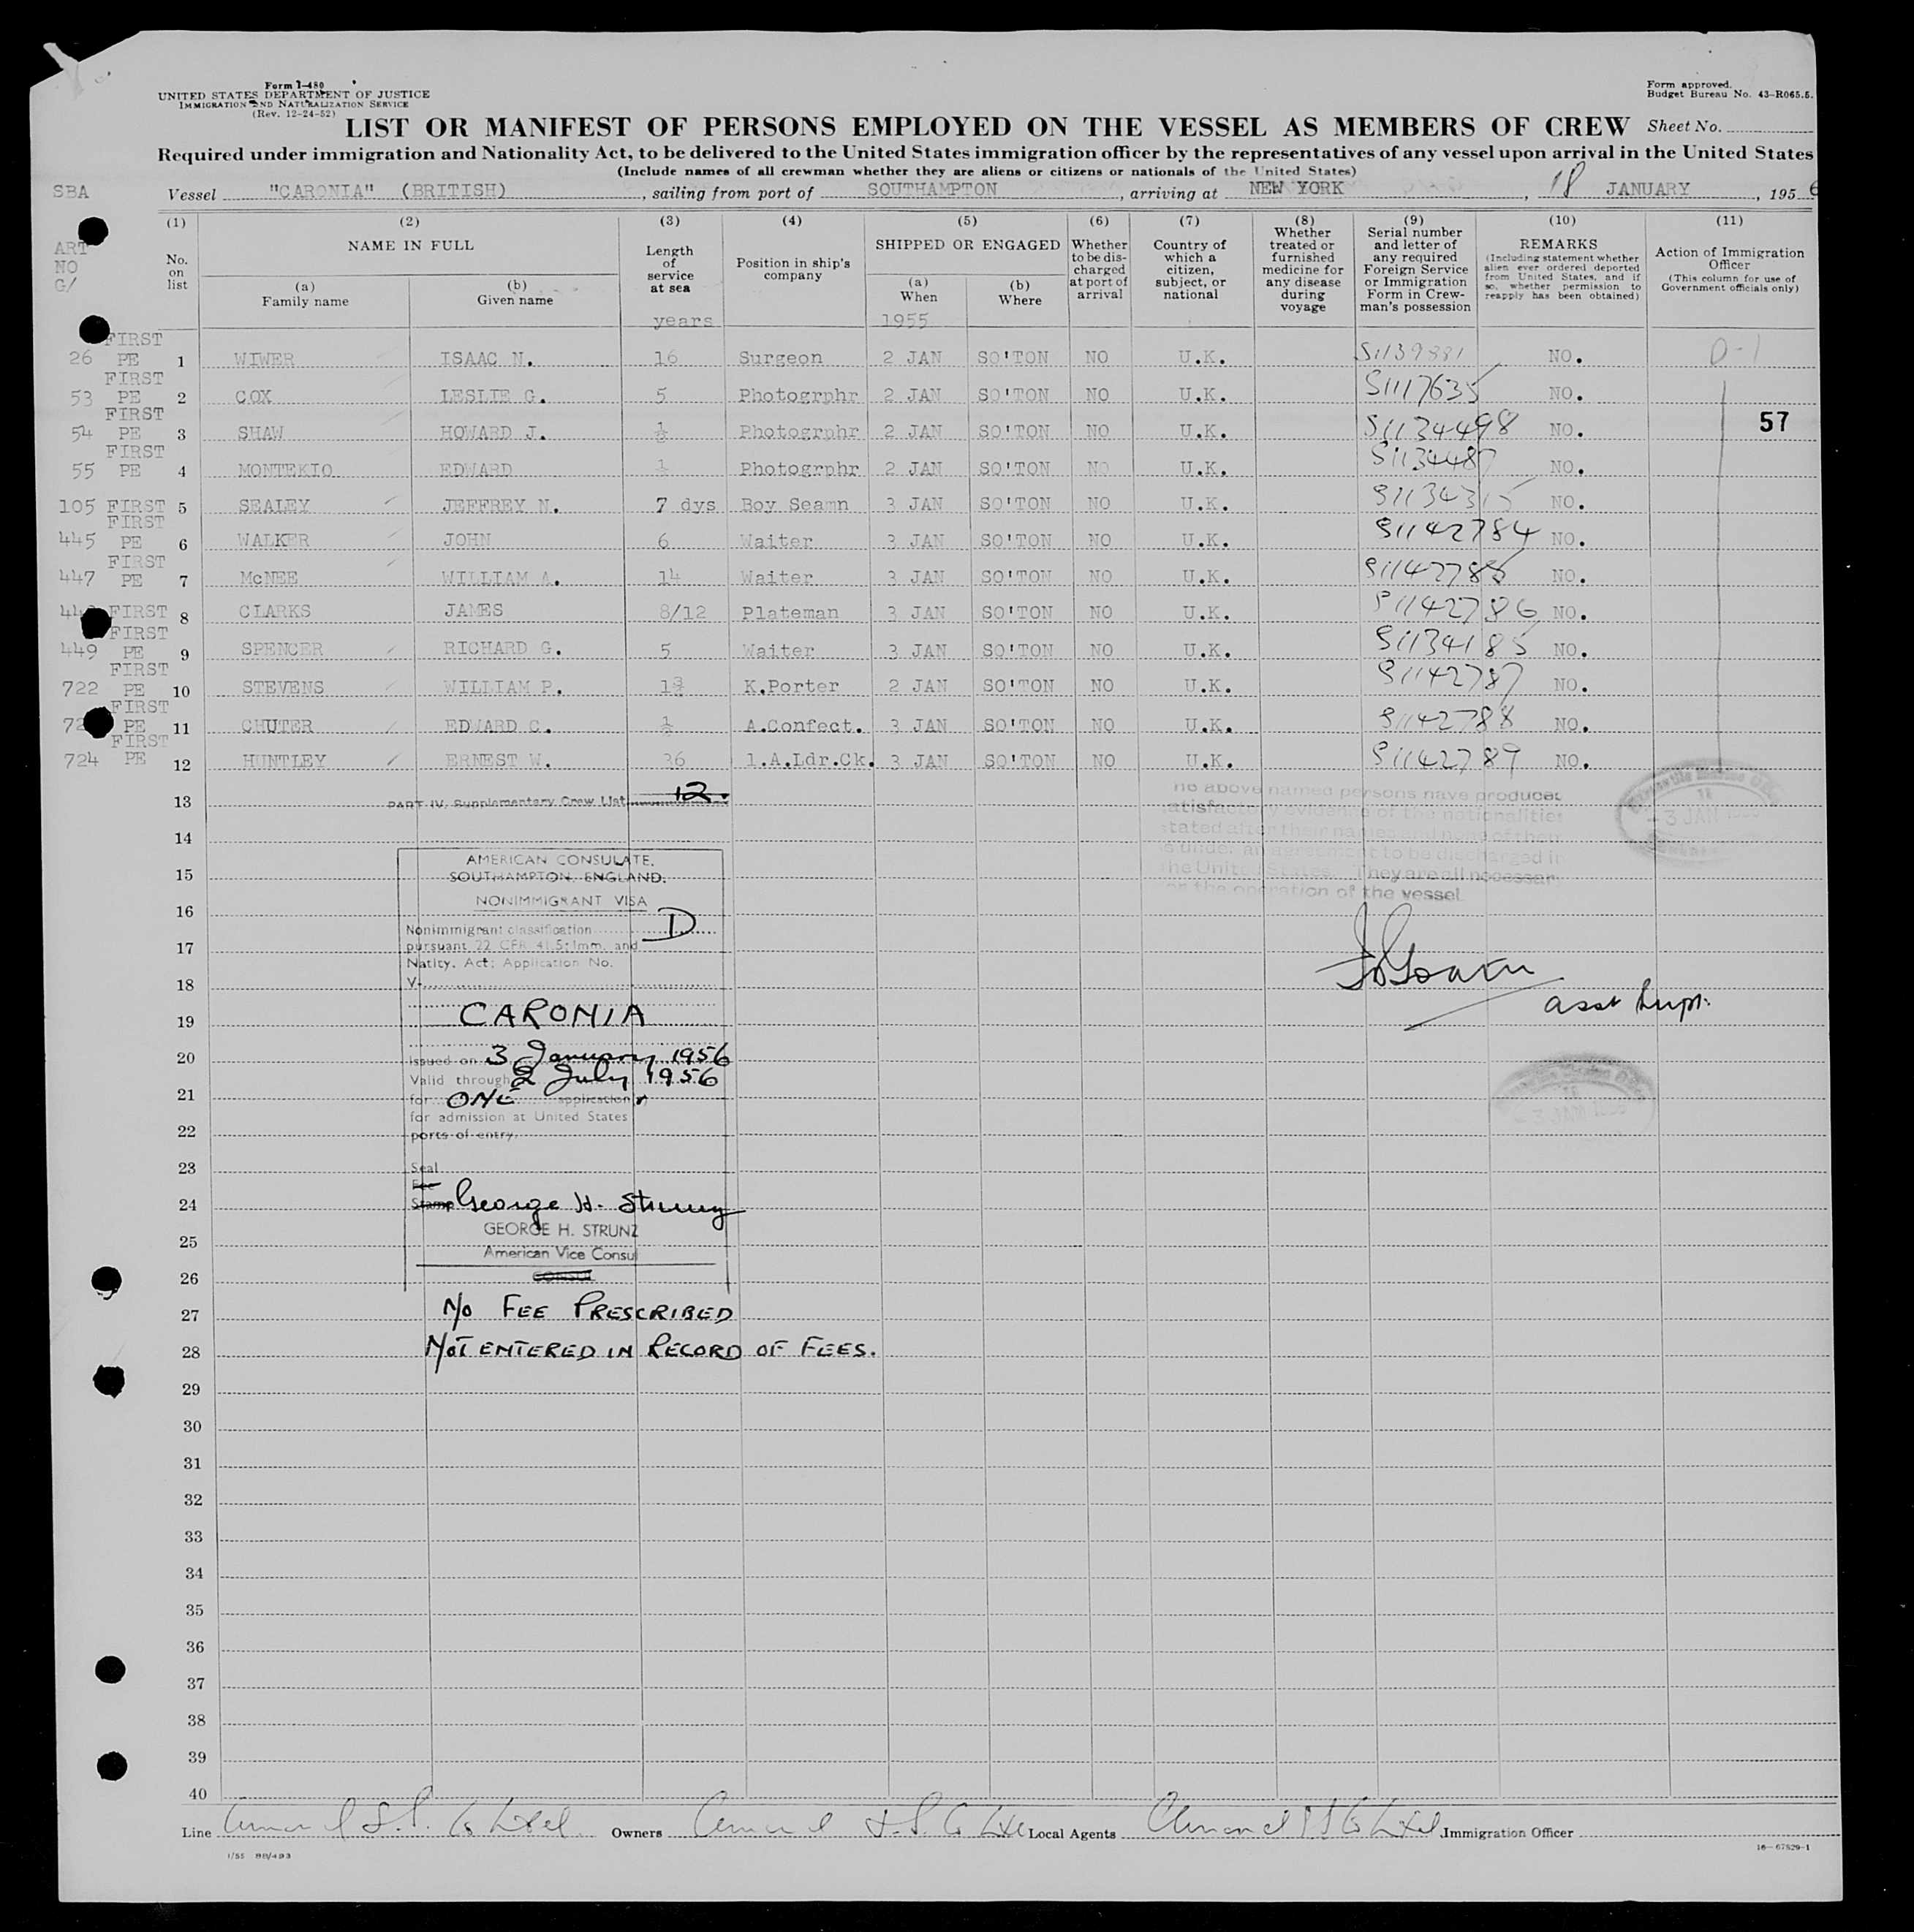 Form I-480
UNITED STATES DEPARTMENT OF JUSTICE
IMMIGRATION AND NATURALIZATION SERVICE
(Rev. 12-24-52)
Form approved.
Budget Bureau No. 43-R065.5.
LIST OR MANIFEST OF PERSONS EMPLOYED ON THE VESSEL AS MEMBERS OF CREW Sheet No.
Required under immigration and Nationality Act, to be delivered to the United States immigration officer by the representatives of any vessel upon arrival in the United States
(Include names of all crewman whether they are aliens or citizens or nationals of the United States)
SBA
Vessel "CARONIA" (BRITISH), sailing from port of SOUTHAMPTON, arriving at NEW YORK, 18 JANUARY, 1956
ART
NO
G/
(1) No. on list
(2) NAME IN FULL
(a) Family name
(b) Given name
(3) Length of service at sea
years
(4) Position in ship's company
(5) SHIPPED OR ENGAGED
(a) When
1955
(b) Where
(6) Whether to be discharged at port of arrival
(7) Country of which a citizen, subject, or national
(8) Whether treated or furnished medicine for any disease during voyage
(9) Serial number and letter of any required Foreign Service or Immigration Form in Crewman's possession
(10) REMARKS (Including statement whether alien ever ordered deported from United States, and if so, whether permission to reapply has been obtained)
(11) Action of Immigration Officer (This column for use of Government officials only)
26 FIRST PE 1 WIWER ISAAC N. 16 Surgeon 2 JAN SO'TON NO U.K. S1139881 NO. D-1
53 FIRST PE 2 COX LESLIE G. 5 Photogrphr 2 JAN SO'TON NO U.K. S1117635 NO.
54 FIRST PE 3 SHAW HOWARD J. ½ Photogrphr 2 JAN SO'TON NO U.K. S1134498 NO. 57
55 FIRST PE 4 MONTEKIO EDWARD ½ Photogrphr 2 JAN SO'TON NO U.K. S1134487 NO.
105 FIRST 5 SEALEY JEFFREY N. 7 dys Boy Seamn 3 JAN SO'TON NO U.K. S1134315 NO.
445 FIRST PE 6 WALKER JOHN 6 Waiter 3 JAN SO'TON NO U.K. S1142784 NO.
447 FIRST PE 7 McNEE WILLIAM A. 14 Waiter 3 JAN SO'TON NO U.K. S1142785 NO.
FIRST 8 CLARKS JAMES 8/12 Plateman 3 JAN SO'TON NO U.K. S1142786 NO.
449 FIRST PE 9 SPENCER RICHARD G. 5 Waiter 3 JAN SO'TON NO U.K. S1134185 NO.
722 FIRST PE 10 STEVENS WILLIAM P. 1¾ K.Porter 2 JAN SO'TON NO U.K. S1142787 NO.
FIRST PE 11 CHUTER EDWARD C. ½ A.Confect. 3 JAN SO'TON NO U.K. S1142788 NO.
724 FIRST PE 12 HUNTLEY ERNEST W. 36 1.A.Ldr.Ck. 3 JAN SO'TON NO U.K. S1142789 NO.
13 PART IV, Supplementary Crew List 12.
he above named persons have produced
satisfactory evidence of the nationalities
stated after their names and none of them
is under an agreement to be discharged in
the United States. They are all necessary
or the operation of the vessel
3 JAN
14
AMERICAN CONSULATE,
15 SOUTHAMPTON, ENGLAND.
NONIMMIGRANT VISA
16
Nonimmigrant classification D
17 pursuant 22 CFR 41.5; Imm. and
Natlty. Act; Application No.
18 V-
asst Supt.
19 CARONIA
20 Issued on 3 January 1956
Valid through 2 July 1956
21 for ONE application
for admission at United States
22 ports of entry.
23 Seal
Fee
24 Stamp George H. Strunz
GEORGE H. STRUNZ
25 American Vice Consul
26 CONSUL
27 NO FEE PRESCRIBED
28 NOT ENTERED IN RECORD OF FEES.
29
30
31
32
33
34
35
36
37
38
39
40
Line Cunard S.S. Co Ltd. Owners Cunard S.S. Co Ltd Local Agents Cunard S S Co Ltd Immigration Officer
1/55 BB/493
16—67529-1